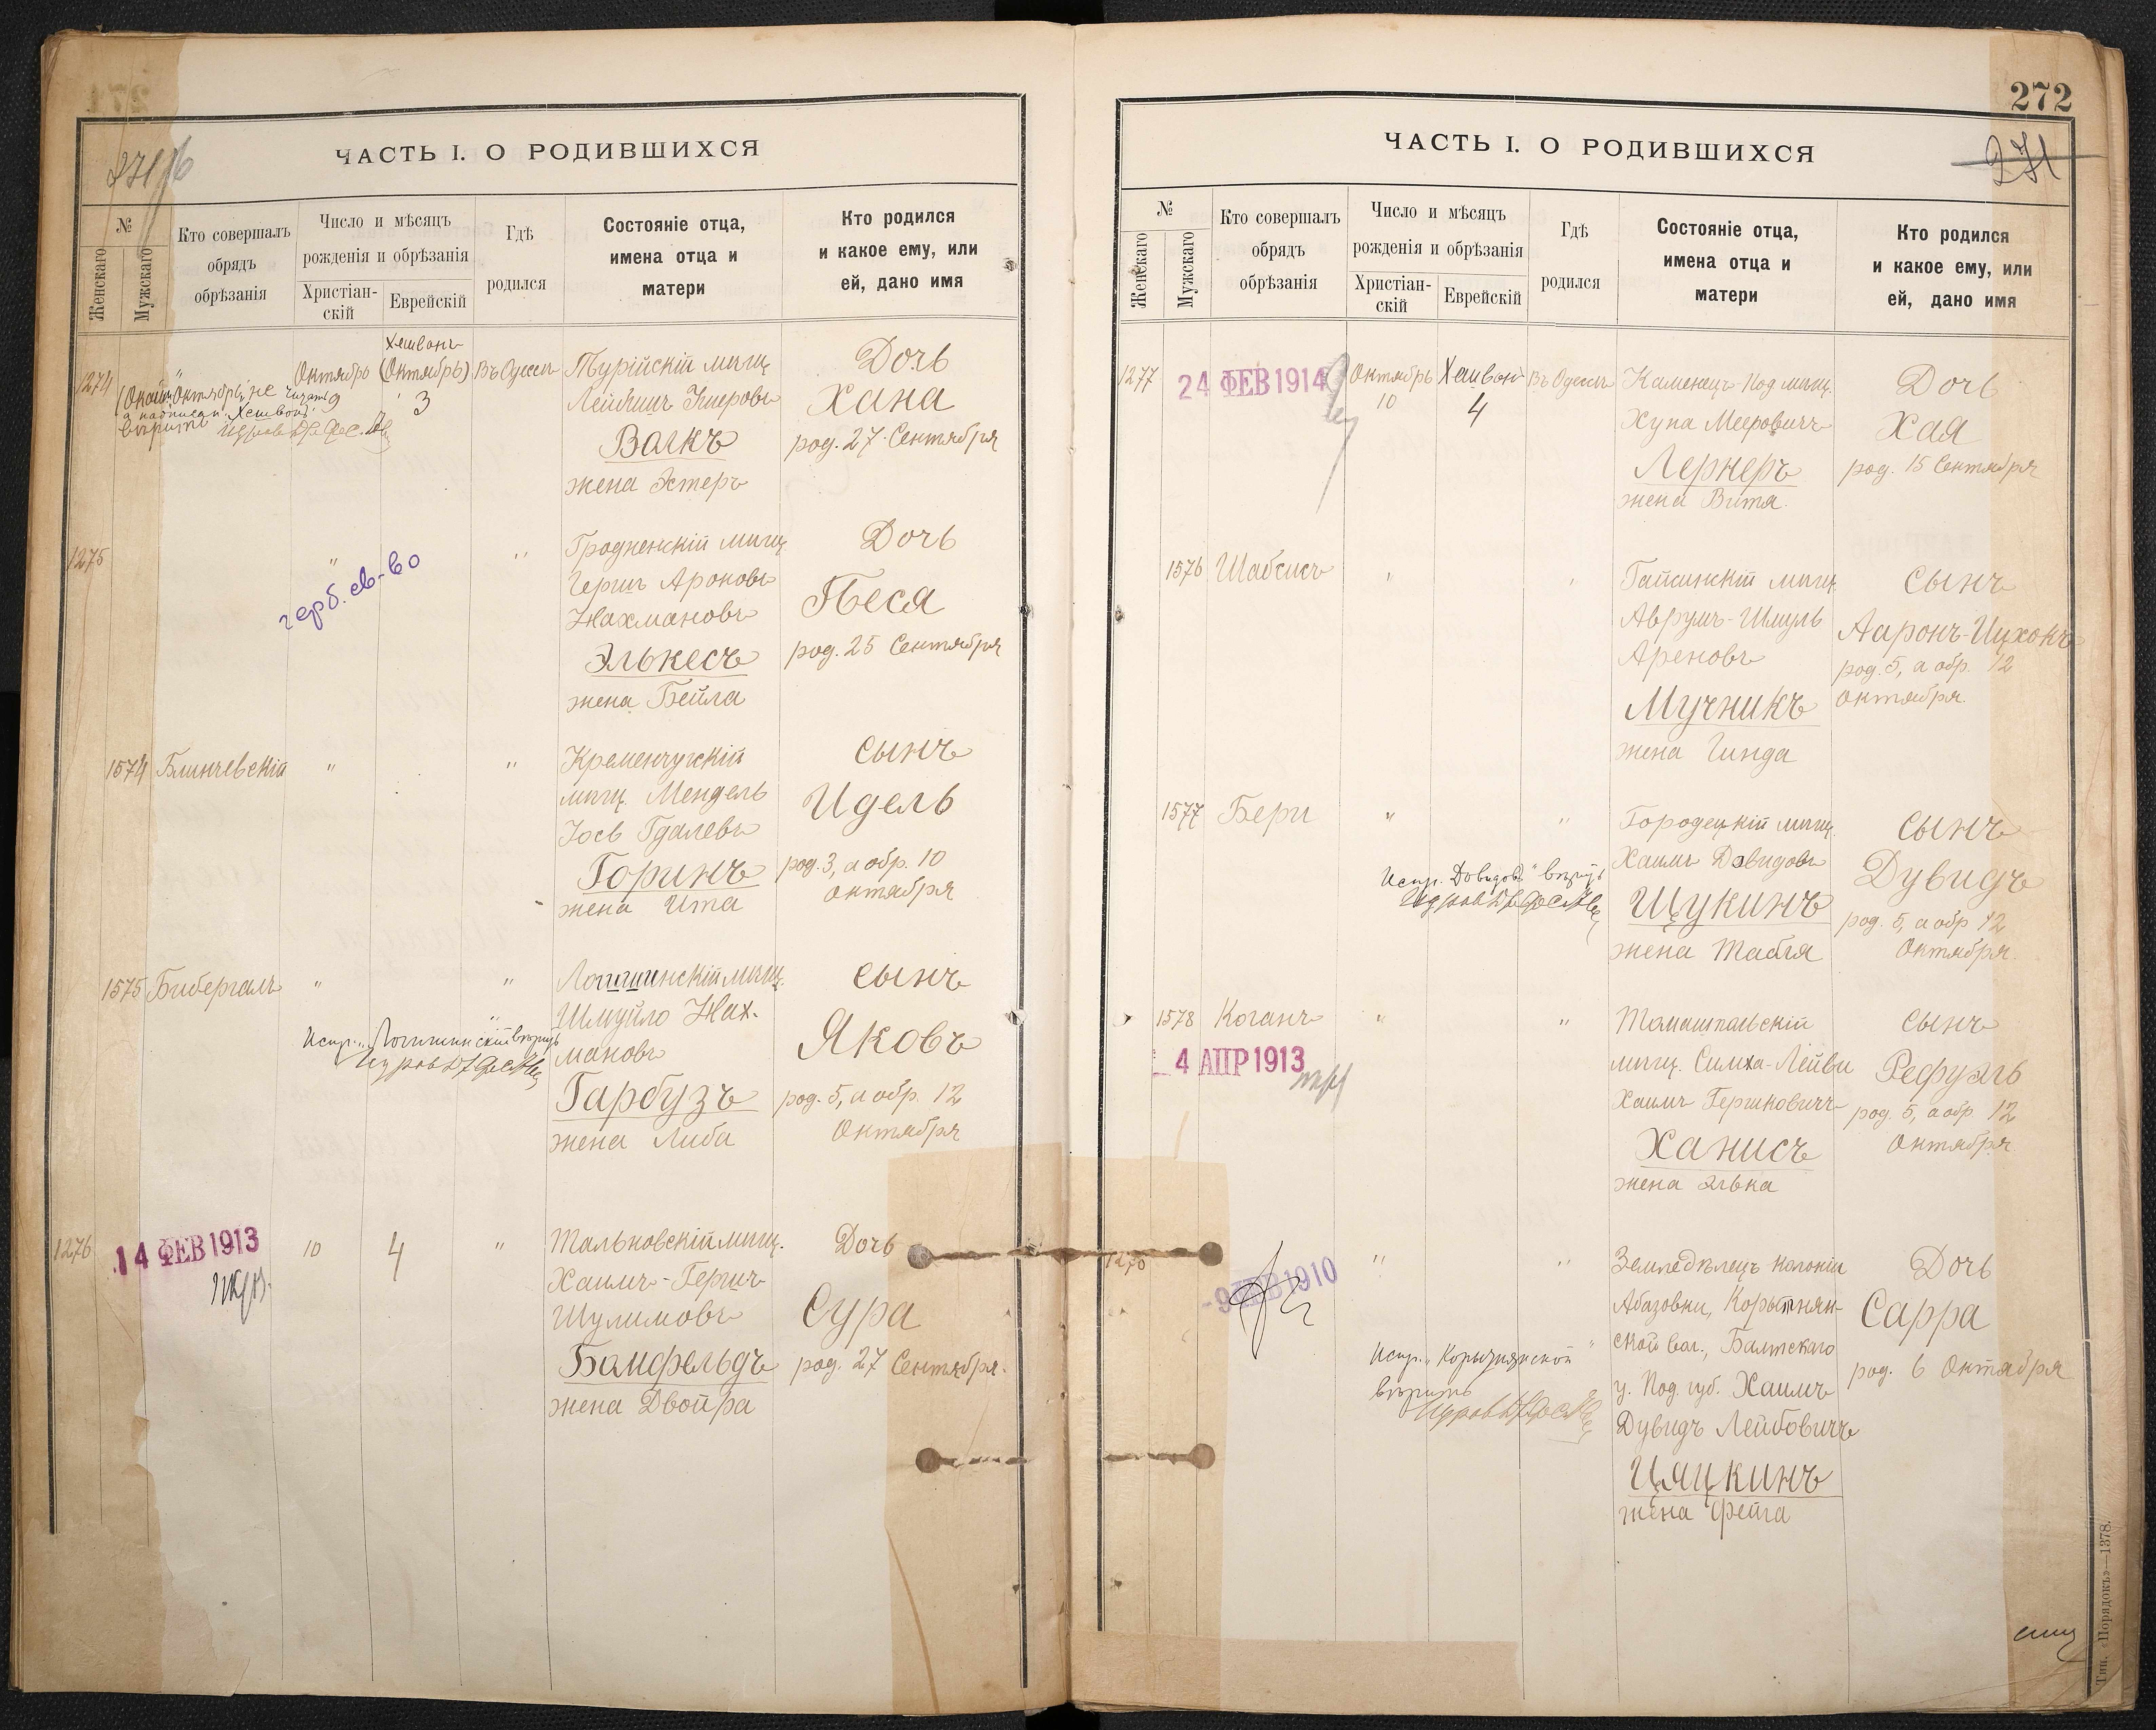 271 об
ЧАСТЬ I. О РОДИВШИХСЯ
№
Женскаго
Мужскаго
Кто совершалъ
обрядъ
обрѣзанія
Число и мѣсяцъ
рожденія и обрѣзанія
Христіан-
скій
Еврейскій
Гдѣ
родился
Состояніе отца,
имена отца и
матери
Кто родился
и какое ему, или
ей, дано имя
1274
Октябрь
9
Хешвонъ
(Октябрь)
3
Въ Одессѣ
Турійскій мѣщ.
Лейбишъ
Валкъ
жена Эстеръ
Дочь
Хана
род. 27 Сентября
"Октябрь" не читать
а надписан. "Хешвонъ"
вѣрить
1275
"
"
герб. св-во
Гродненскій мѣщ.
Гершъ Ароновъ
Нахмановъ
Элькесъ
жена Бейла
Дочь
Песя
род. 25 Сентября
1574
Блинчевскій
"
"
Кременчугскій
мѣщ. Мендель
Іось Гдалевъ
Горинъ
жена Ита
Сынъ
Идель
род. 3, а обр. 10
октября
1575
Бибергалъ
"
"
Испр. "Логишинскій" вѣрить
Логишинскій мѣщ.
Шмуйло Нах-
мановъ
Гарбузъ
жена Либа
Сынъ
Яковъ
род. 5, а обр. 12
Октября
1276
14 ФЕВ 1913
10
4
"
Тальновскій мѣщ.
Хаимъ-Гершъ
Шулимовъ
Бамфельдъ
жена Двойра
Дочь
Сура
род. 27 Сентября.
272
271
ЧАСТЬ I. О РОДИВШИХСЯ
№
Женскаго
Мужскаго
Кто совершалъ
обрядъ
обрѣзанія
Число и мѣсяцъ
рожденія и обрѣзанія
Христіан-
скій
Еврейскій
Гдѣ
родился
Состояніе отца,
имена отца и
матери
Кто родился
и какое ему, или
ей, дано имя
1277
24 ФЕВ 1914
Октябрь
10
Хешвон
4
Въ Одессѣ
Каменецъ-Под мѣщ.
Хуна Мееровичъ
Лернеръ
жена Витя
Дочь
Хая
род. 15 Сентября
1576
Шабсисъ
"
"
Гайсинскій мѣщ.
Аврумъ-Шмуль
Ареновъ
Мучникъ
жена Гинда
Сынъ
Ааронъ-Ицхокъ
род. 5, а обр. 12
октября.
1577
Бери
"
"
Испр. "Довидовъ" вѣрить
Городецкій мѣщ.
Хаимъ Довидовъ
Щукинъ
жена Табля
Сынъ
Дувидъ
род. 5, а обр 12
Октября.
1578
Коганъ
4 АПР 1913
"
"
Томашпольскій
мѣщ. Симха-Лейви
Хаимъ Гершковичъ
Ханисъ
жена Элька
Сынъ
Рефуэль
род. 5, а обр 12
Октября
1278
- 9 1910
"
"
Испр. "
вѣрить
Земледѣлецъ колоніи
Абазовки, Корытнян-
ской вол., Балтскаго
у. Под. губ. Хаимъ
Дувидъ Лейбовичъ
Цяцкинъ
жена Фейга
Дочь
Сарра
род. 6 Октября
Тип. «Порядокъ»—1378.